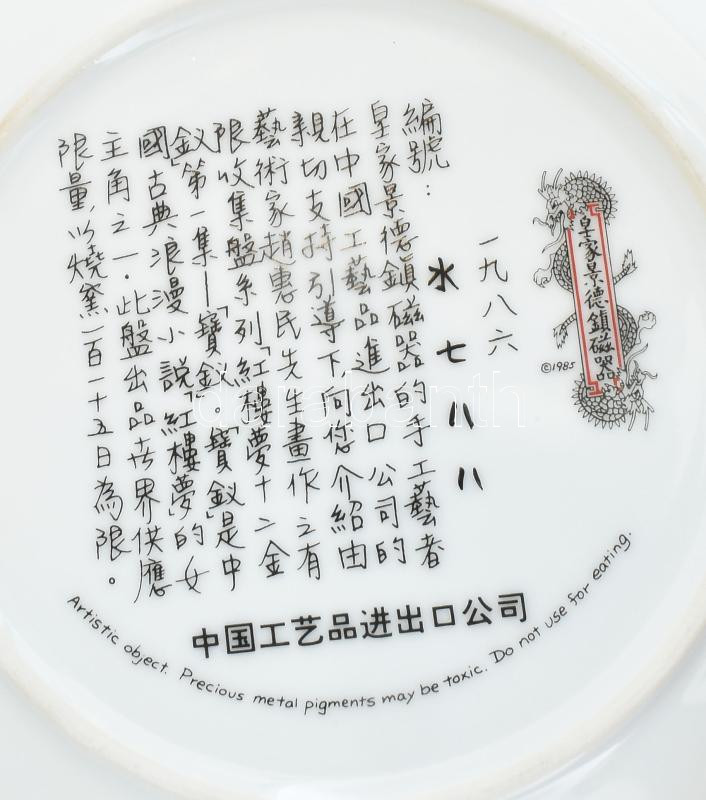 皇家景德鎮磁器
©1985
一九八六
編號:
水七八八
皇家景德鎮磁器的手工藝者
在中國工藝品進出口公司的
親切支持引導下向您介紹由
藝術家趙惠民先生畫作之有
限收集盤系列「紅樓夢十二金
釵」第一集—「寶釵」。「寶釵」是中
國古典浪漫小說「紅樓夢」的女
主角之一.此盤出品世界供應
限量,以燒窯一百一十五日為限。
中国工艺品进出口公司
Artistic object. Precious metal pigments may be toxic. Do not use for eating.
darabanth